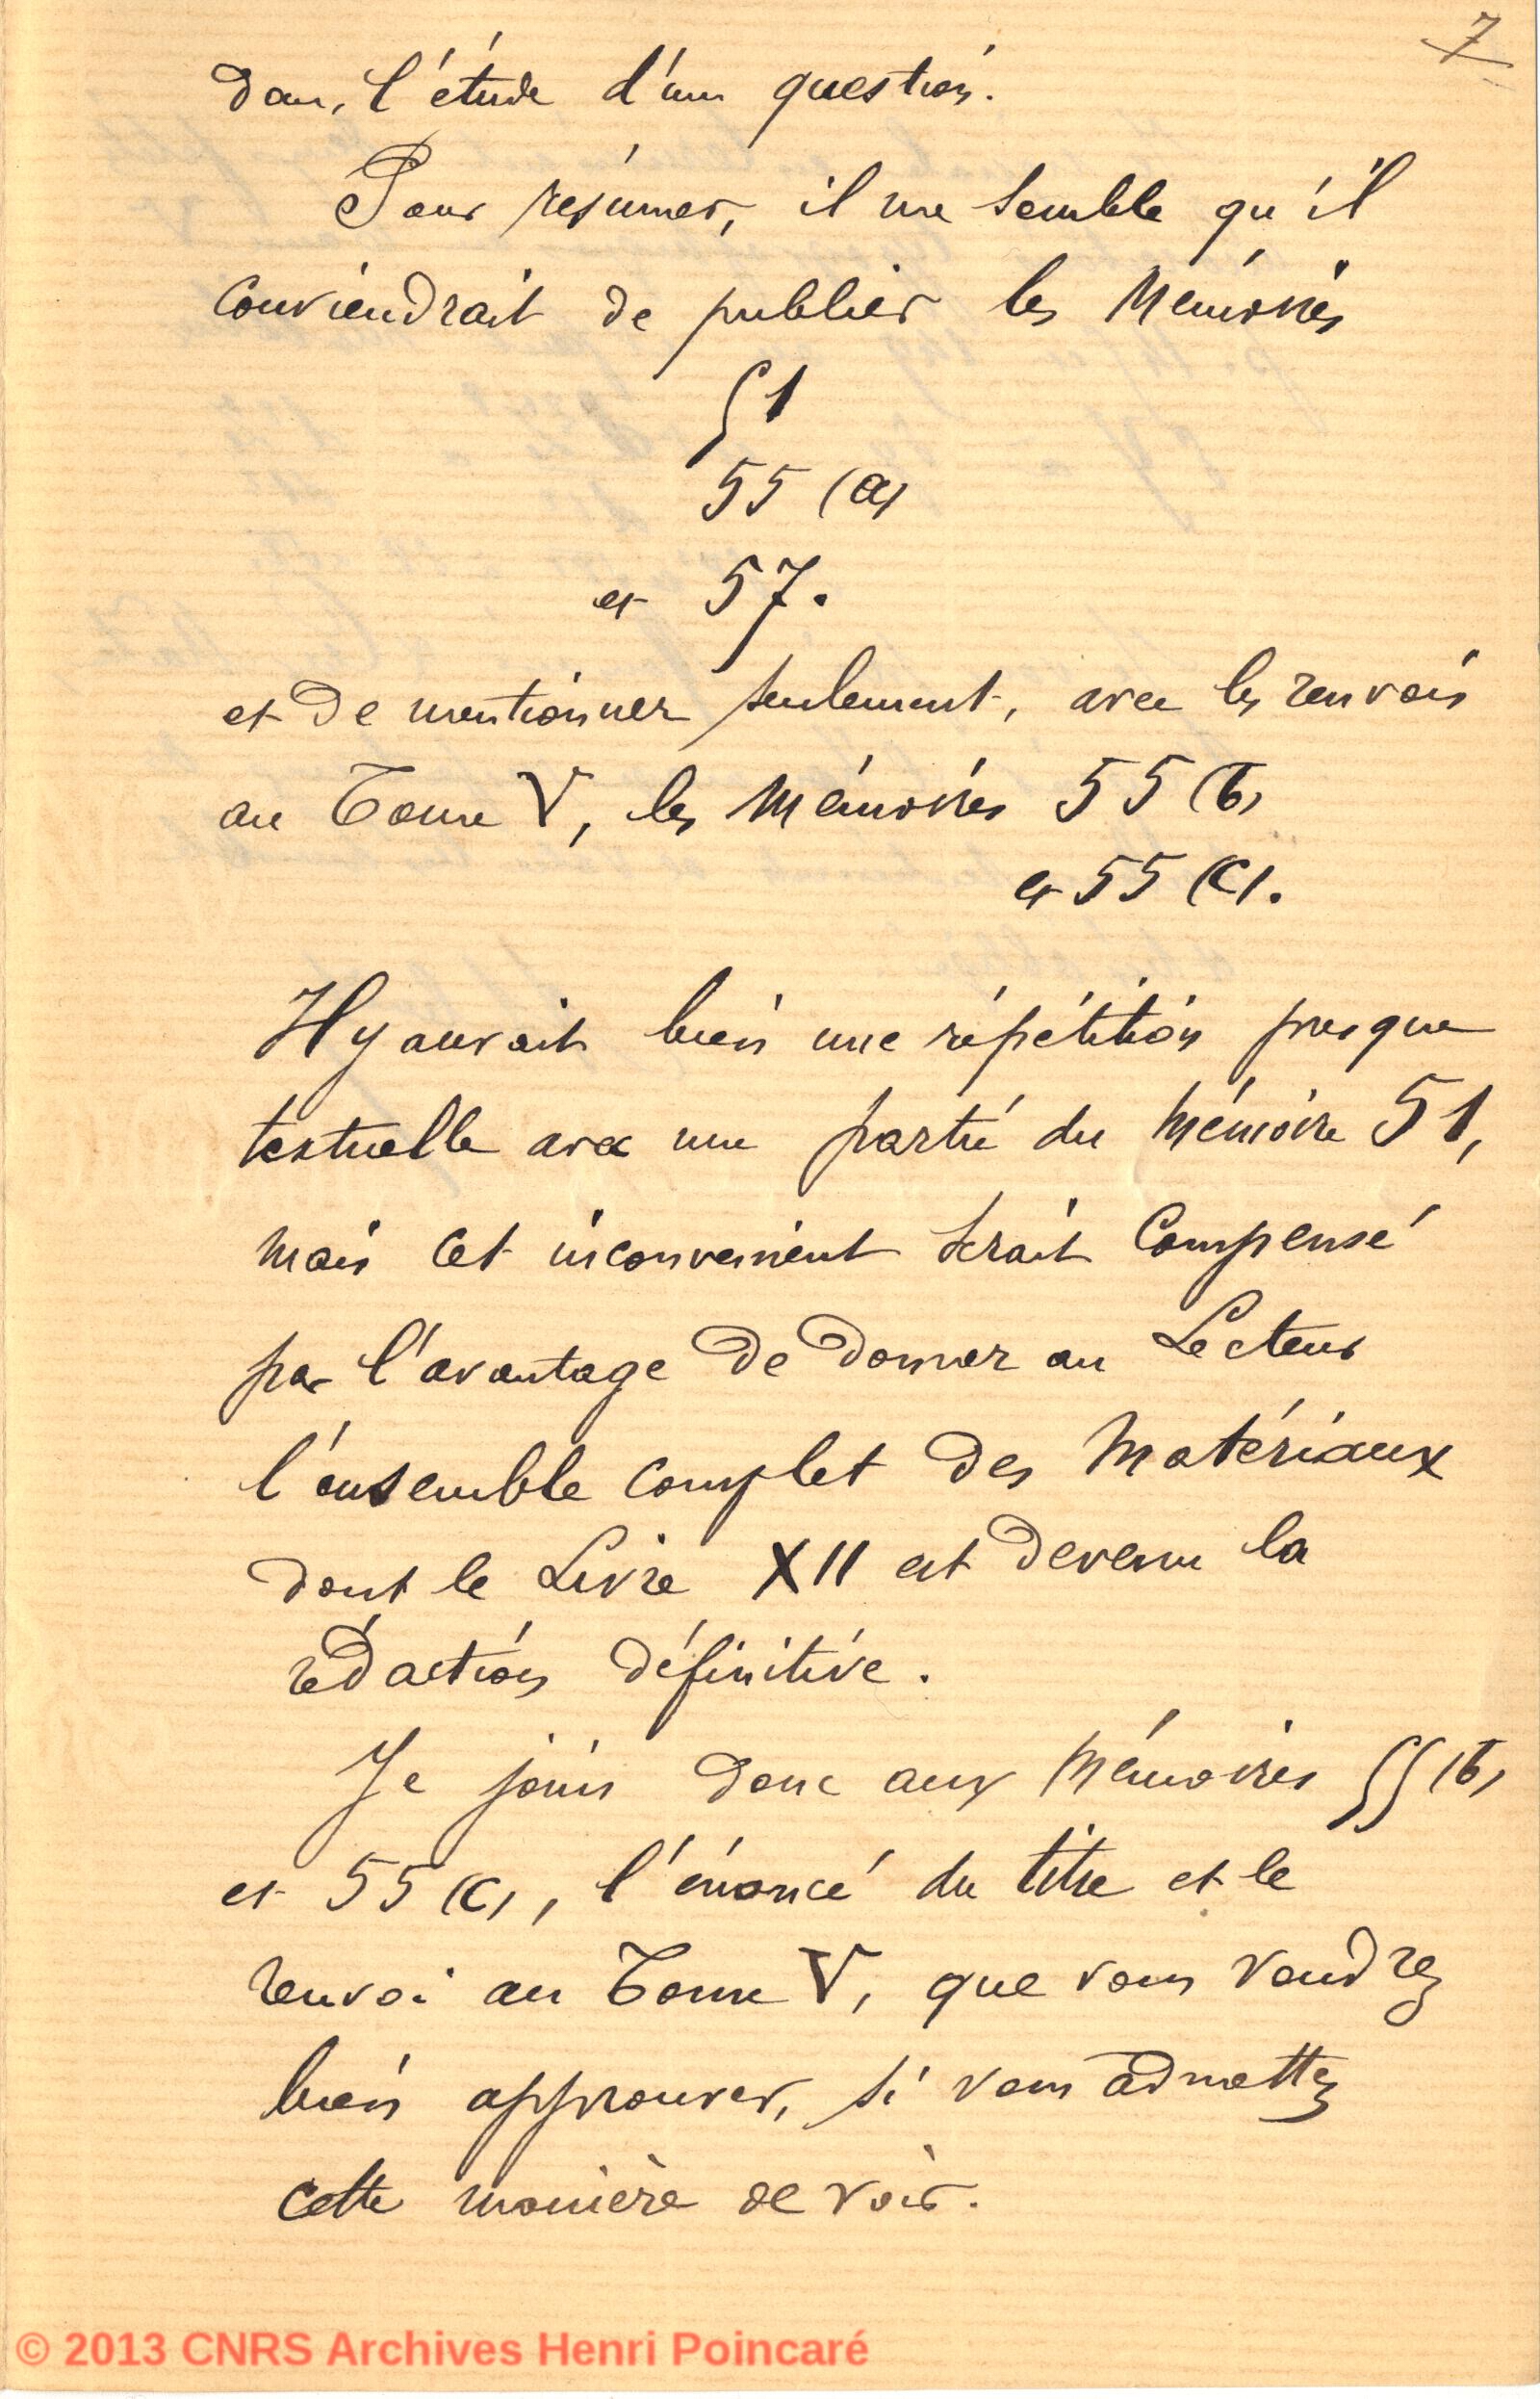 7
dans l'étude d'une question.
Pour résumer, il me semble qu'il
conviendrait de publier les Mémoires
51
55 (a)
et 57.
et de mentionner seulement, avec les renvois
au Tome V, les Mémoires 55 (b)
et 55 (c).
Il y aurait bien une répétition presque
textuelle avec une partie du Mémoire 51,
mais cet inconvenient serait compensé
par l'avantage de donner au Lecteur
l'ensemble complet des Matériaux
dont le Livre XII est devenu la
rédaction définitive.
Je joins donc aux Mémoires 55 (b)
et 55 (c), l'énoncé du titre et le
renvoi au Tome V, que vous voudrez
bien approuver, si vous admettez
cette manière de voir.
© 2013 CNRS Archives Henri Poincaré